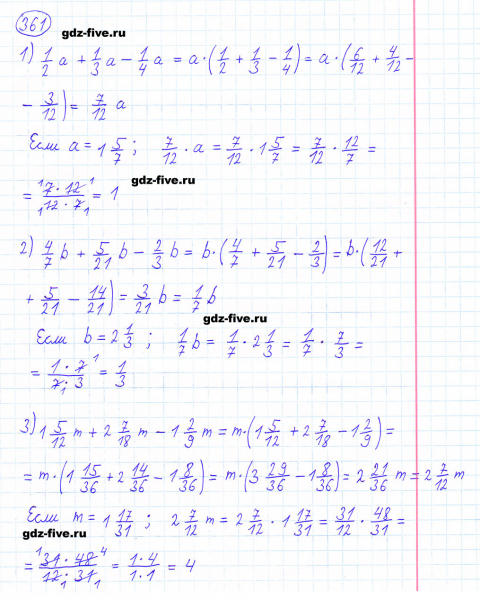 361
gdz-five.ru
1) 1/2 a + 1/3 a − 1/4 a = a·(1/2 + 1/3 − 1/4) = a·(6/12 + 4/12 −
− 3/12) = 7/12 a
Если a = 1 5/7; 7/12 · a = 7/12 · 1 5/7 = 7/12 · 12/7 =
= 7·12/12·7 = 1
gdz-five.ru
2) 4/7 b + 5/21 b − 2/3 b = b·(4/7 + 5/21 − 2/3) = b·(12/21 +
+ 5/21 − 14/21) = 3/21 b = 1/7 b
gdz-five.ru
Если b = 2 1/3; 1/7 b = 1/7 · 2 1/3 = 1/7 · 7/3 =
= 1·7/7·3 = 1/3
3) 1 5/12 m + 2 7/18 m − 1 2/9 m = m·(1 5/12 + 2 7/18 − 1 2/9) =
= m·(1 15/36 + 2 14/36 − 1 8/36) = m·(3 29/36 − 1 8/36) = 2 21/36 m = 2 7/12 m
Если m = 1 17/31; 2 7/12 m = 2 7/12 · 1 17/31 = 31/12 · 48/31 =
gdz-five.ru
= 31·48/12·31 = 1·4/1·1 = 4